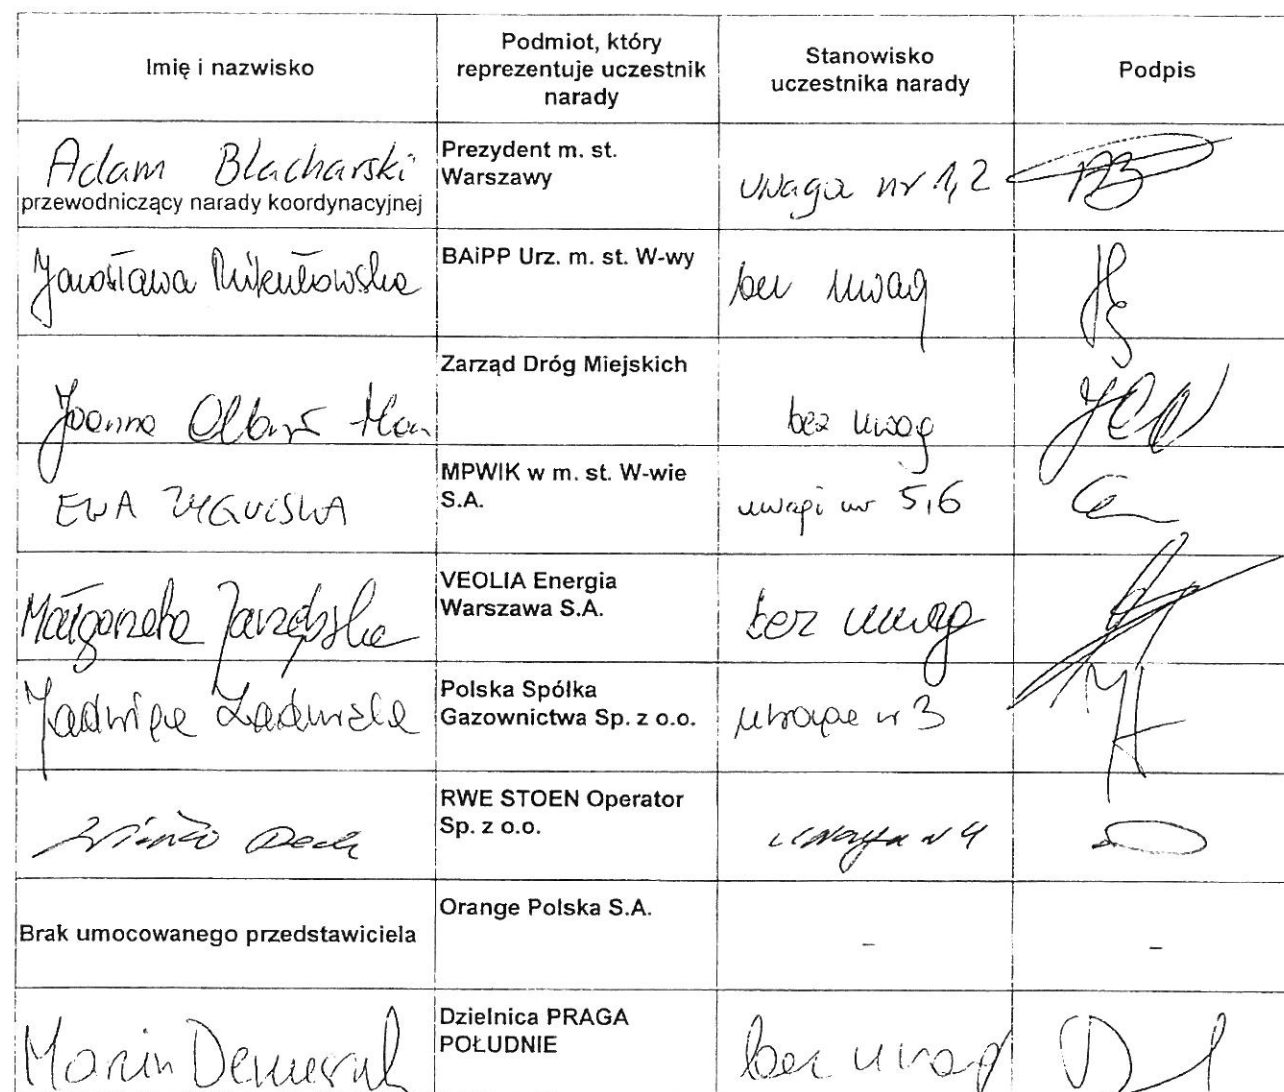 Imię i nazwisko
Podmiot, który
reprezentuje uczestnik
narady
Stanowisko
uczestnika narady
Podpis
Adam Blacharski
przewodniczący narady koordynacyjnej
Prezydent m. st.
Warszawy
uwaga nr 1,2
Jarosława Mikułowska
BAiPP Urz. m. st. W-wy
bez uwag
Joanna
Zarząd Dróg Miejskich
bez uwag
EWA
MPWIK w m. st. W-wie
S.A.
uwagi nr 5,6
Małgorzata Jarzębska
VEOLIA Energia
Warszawa S.A.
bez uwag
Jadwiga
Polska Spółka
Gazownictwa Sp. z o.o.
uwaga nr 3
RWE STOEN Operator
Sp. z o.o.
uwaga nr 4
Brak umocowanego przedstawiciela
Orange Polska S.A.
-
-
Marcin
Dzielnica PRAGA
POŁUDNIE
bez uwag